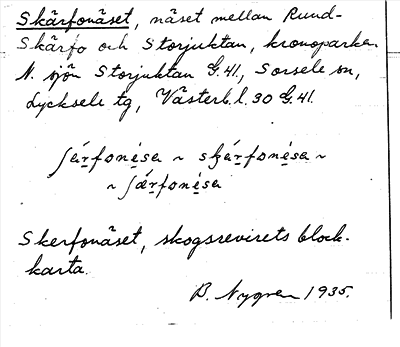 Skärfonäset, näset mellan Rund-
Skärfa och Storjuktan, kronoparken
N. sjön Storjuktan G.41, Sorsele sn,
Lycksele tg, Västerb. l. 30 G.41.
ʃárfonè̩sa ~ skárfonè̩sa ~
~ ʃǽrfonè̩sa
Skerfonäset, skogsrevirets block-
karta.
B. Nygren 1935.